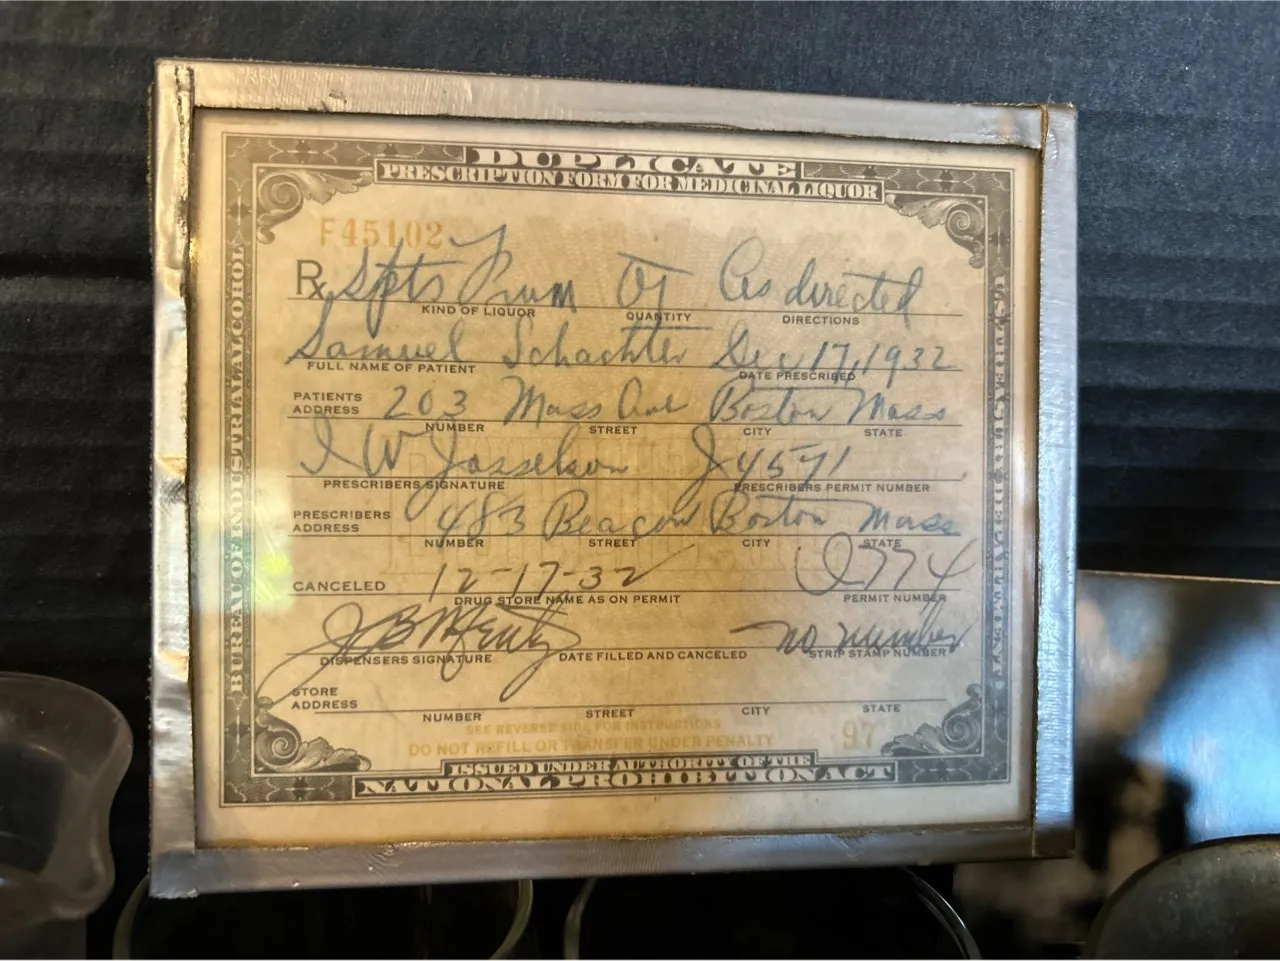 DUPLICATE
PRESCRIPTION FORM FOR MEDICINAL LIQUOR
F45102
Rx Spts Frum Oj As directed
KIND OF LIQUOR QUANTITY DIRECTIONS
Samuel Schachter Dec 17, 1932
FULL NAME OF PATIENT DATE PRESCRIBED
PATIENTS ADDRESS 203 Mass Ave Boston Mass
NUMBER STREET CITY STATE
I W Josselson J4571
PRESCRIBERS SIGNATURE PRESCRIBERS PERMIT NUMBER
PRESCRIBERS ADDRESS 483 Beacon Boston Mass
NUMBER STREET CITY STATE
CANCELED 12-17-32 0774
DRUG STORE NAME AS ON PERMIT PERMIT NUMBER
J B no number
DISPENSERS SIGNATURE DATE FILLED AND CANCELED STRIP STAMP NUMBER
STORE ADDRESS
NUMBER STREET CITY STATE
SEE REVERSE SIDE FOR INSTRUCTIONS
DO NOT REFILL OR TRANSFER UNDER PENALTY 97
ISSUED UNDER AUTHORITY OF THE
NATIONAL PROHIBITION ACT
BUREAU OF INDUSTRIAL ALCOHOL
U.S. TREASURY DEPARTMENT